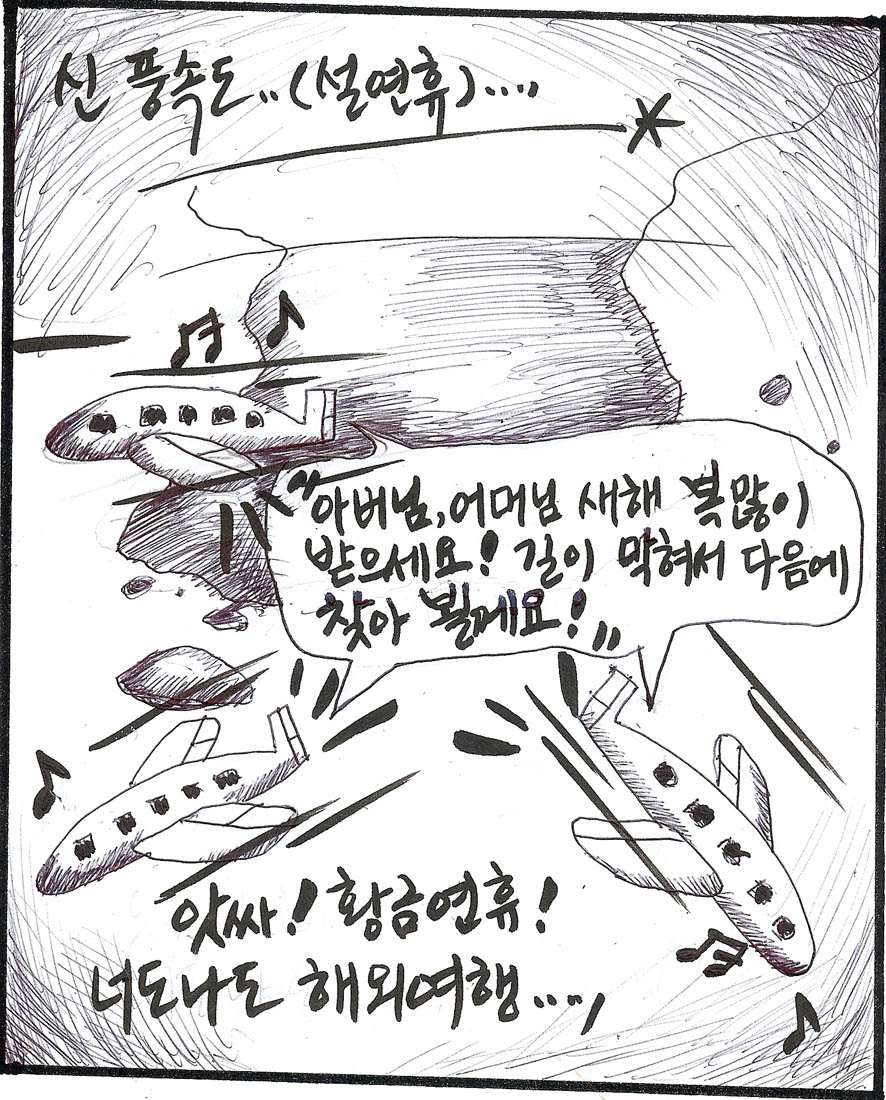 신 풍속도..(설연휴)....,
"아버님, 어머님 새해 복많이
받으세요! 길이 막혀서 다음에
찾아 뵐께요!"
앗싸! 황금연휴!
너도나도 해외여행....,